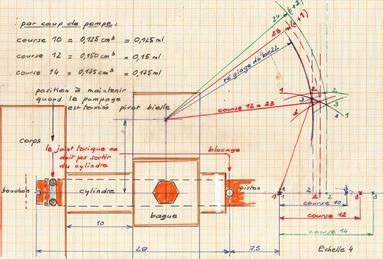 par coup de pompe :
course 10 = 0,125 cm³ = 0,125 ml
course 12 = 0,150 cm³ = 0,15 ml
course 14 = 0,175 cm³ = 0,175 ml
position à maintenir
quand le pompage
est terminé pivot bielle
corps
le joint torique ne
doit pas sortir
du cylindre
blocage
bouchon
cylindre
piston
bague
10
7.5
course 12 = 28
course 10
course 12
course 14
Echelle 4